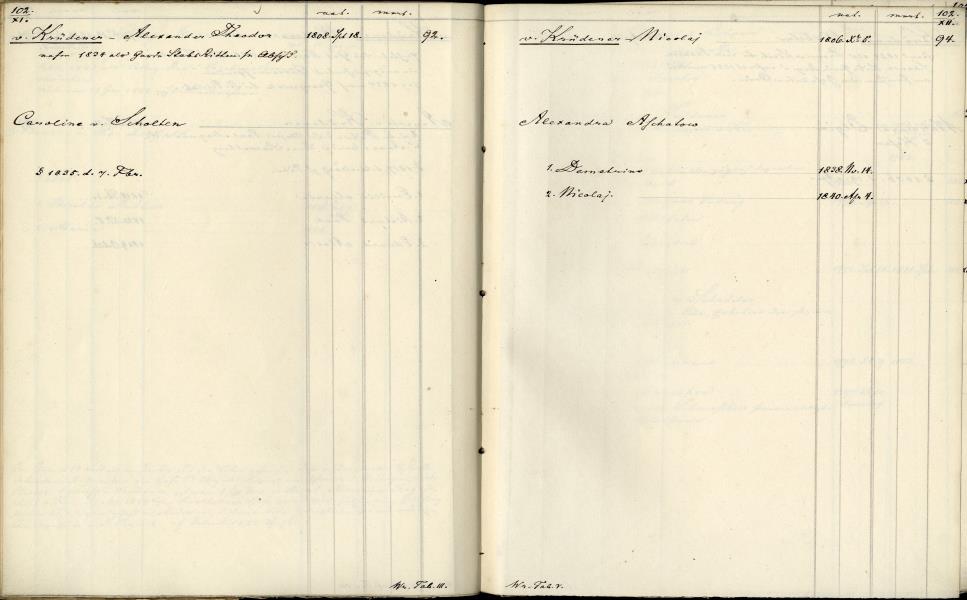 102.
XI.
nat. mort.
v. Krüdener - Alexander Theodor 1808. Jul 18. 92.
nahm 1834 als Garde Stabs Rittm. sn
Caroline v. Scholten
§ 1835. d. 7. Fbr.
Wr. Tab. III.
nat. mort. 102.
XII.
v. Krüdener - Nicolaj 1806. Xr 6. 94.
Alexandra Aschatow
1. Demetrius 1838. No. 14.
2. Nicolaj. 1840. Apr 4.
Wr. Tab. V.